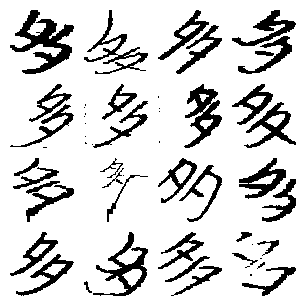 多多多多
多多多多
多多多多
多多多多